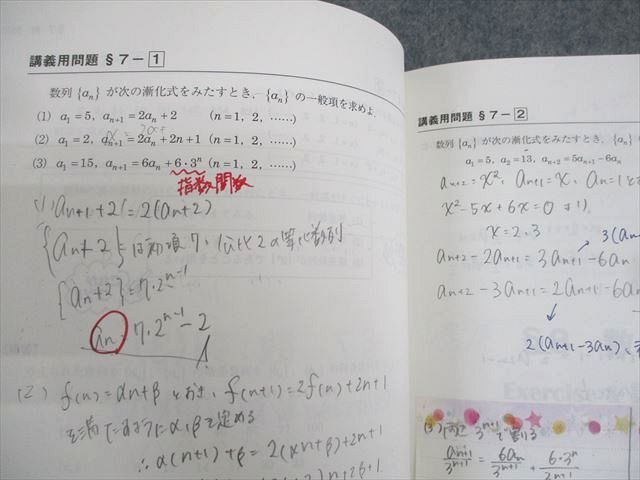 講義用問題 §7－1
数列 {aₙ} が次の漸化式をみたすとき, {aₙ} の一般項を求めよ.
(1) a₁＝5, aₙ₊₁＝2aₙ＋2 (n＝1, 2, ……)
(2) a₁＝2, aₙ₊₁＝2aₙ＋2n＋1 (n＝1, 2, ……)
(3) a₁＝15, aₙ₊₁＝6aₙ＋6・3ⁿ (n＝1, 2, ……)
指数関数
(1) aₙ₊₁+2 = 2(aₙ+2)
{aₙ+2} は初項7, 公比2の等比数列
{aₙ+2} = 7・2ⁿ⁻¹
aₙ 7・2ⁿ⁻¹－2
(2) f(n)=αn+β とおき, f(n+1)=2f(n)+2n+1
を満たすようにα,βを定める
∴ α(n+1)+β = 2(αn+β)+2n+1
講義用問題 §7－2
数列 {aₙ} が次の漸化式をみたすとき,
a₁＝5, a₂＝13, aₙ₊₂＝5aₙ₊₁－6aₙ
aₙ₊₂=x², aₙ₊₁=x, aₙ=1と
x²－5x+6x=0 より
x=2.3
3(aₙ
aₙ₊₂－2aₙ₊₁ = 3aₙ₊₁－6aₙ
aₙ₊₂－3aₙ₊₁ = 2aₙ₊₁－6aₙ
2(aₙ₊₁－3aₙ)
Exercise
(3) 両辺 3ⁿ⁺¹で割る
aₙ₊₁/3ⁿ⁺¹ = 6aₙ/3ⁿ⁺¹ + 6・3ⁿ/3ⁿ⁺¹